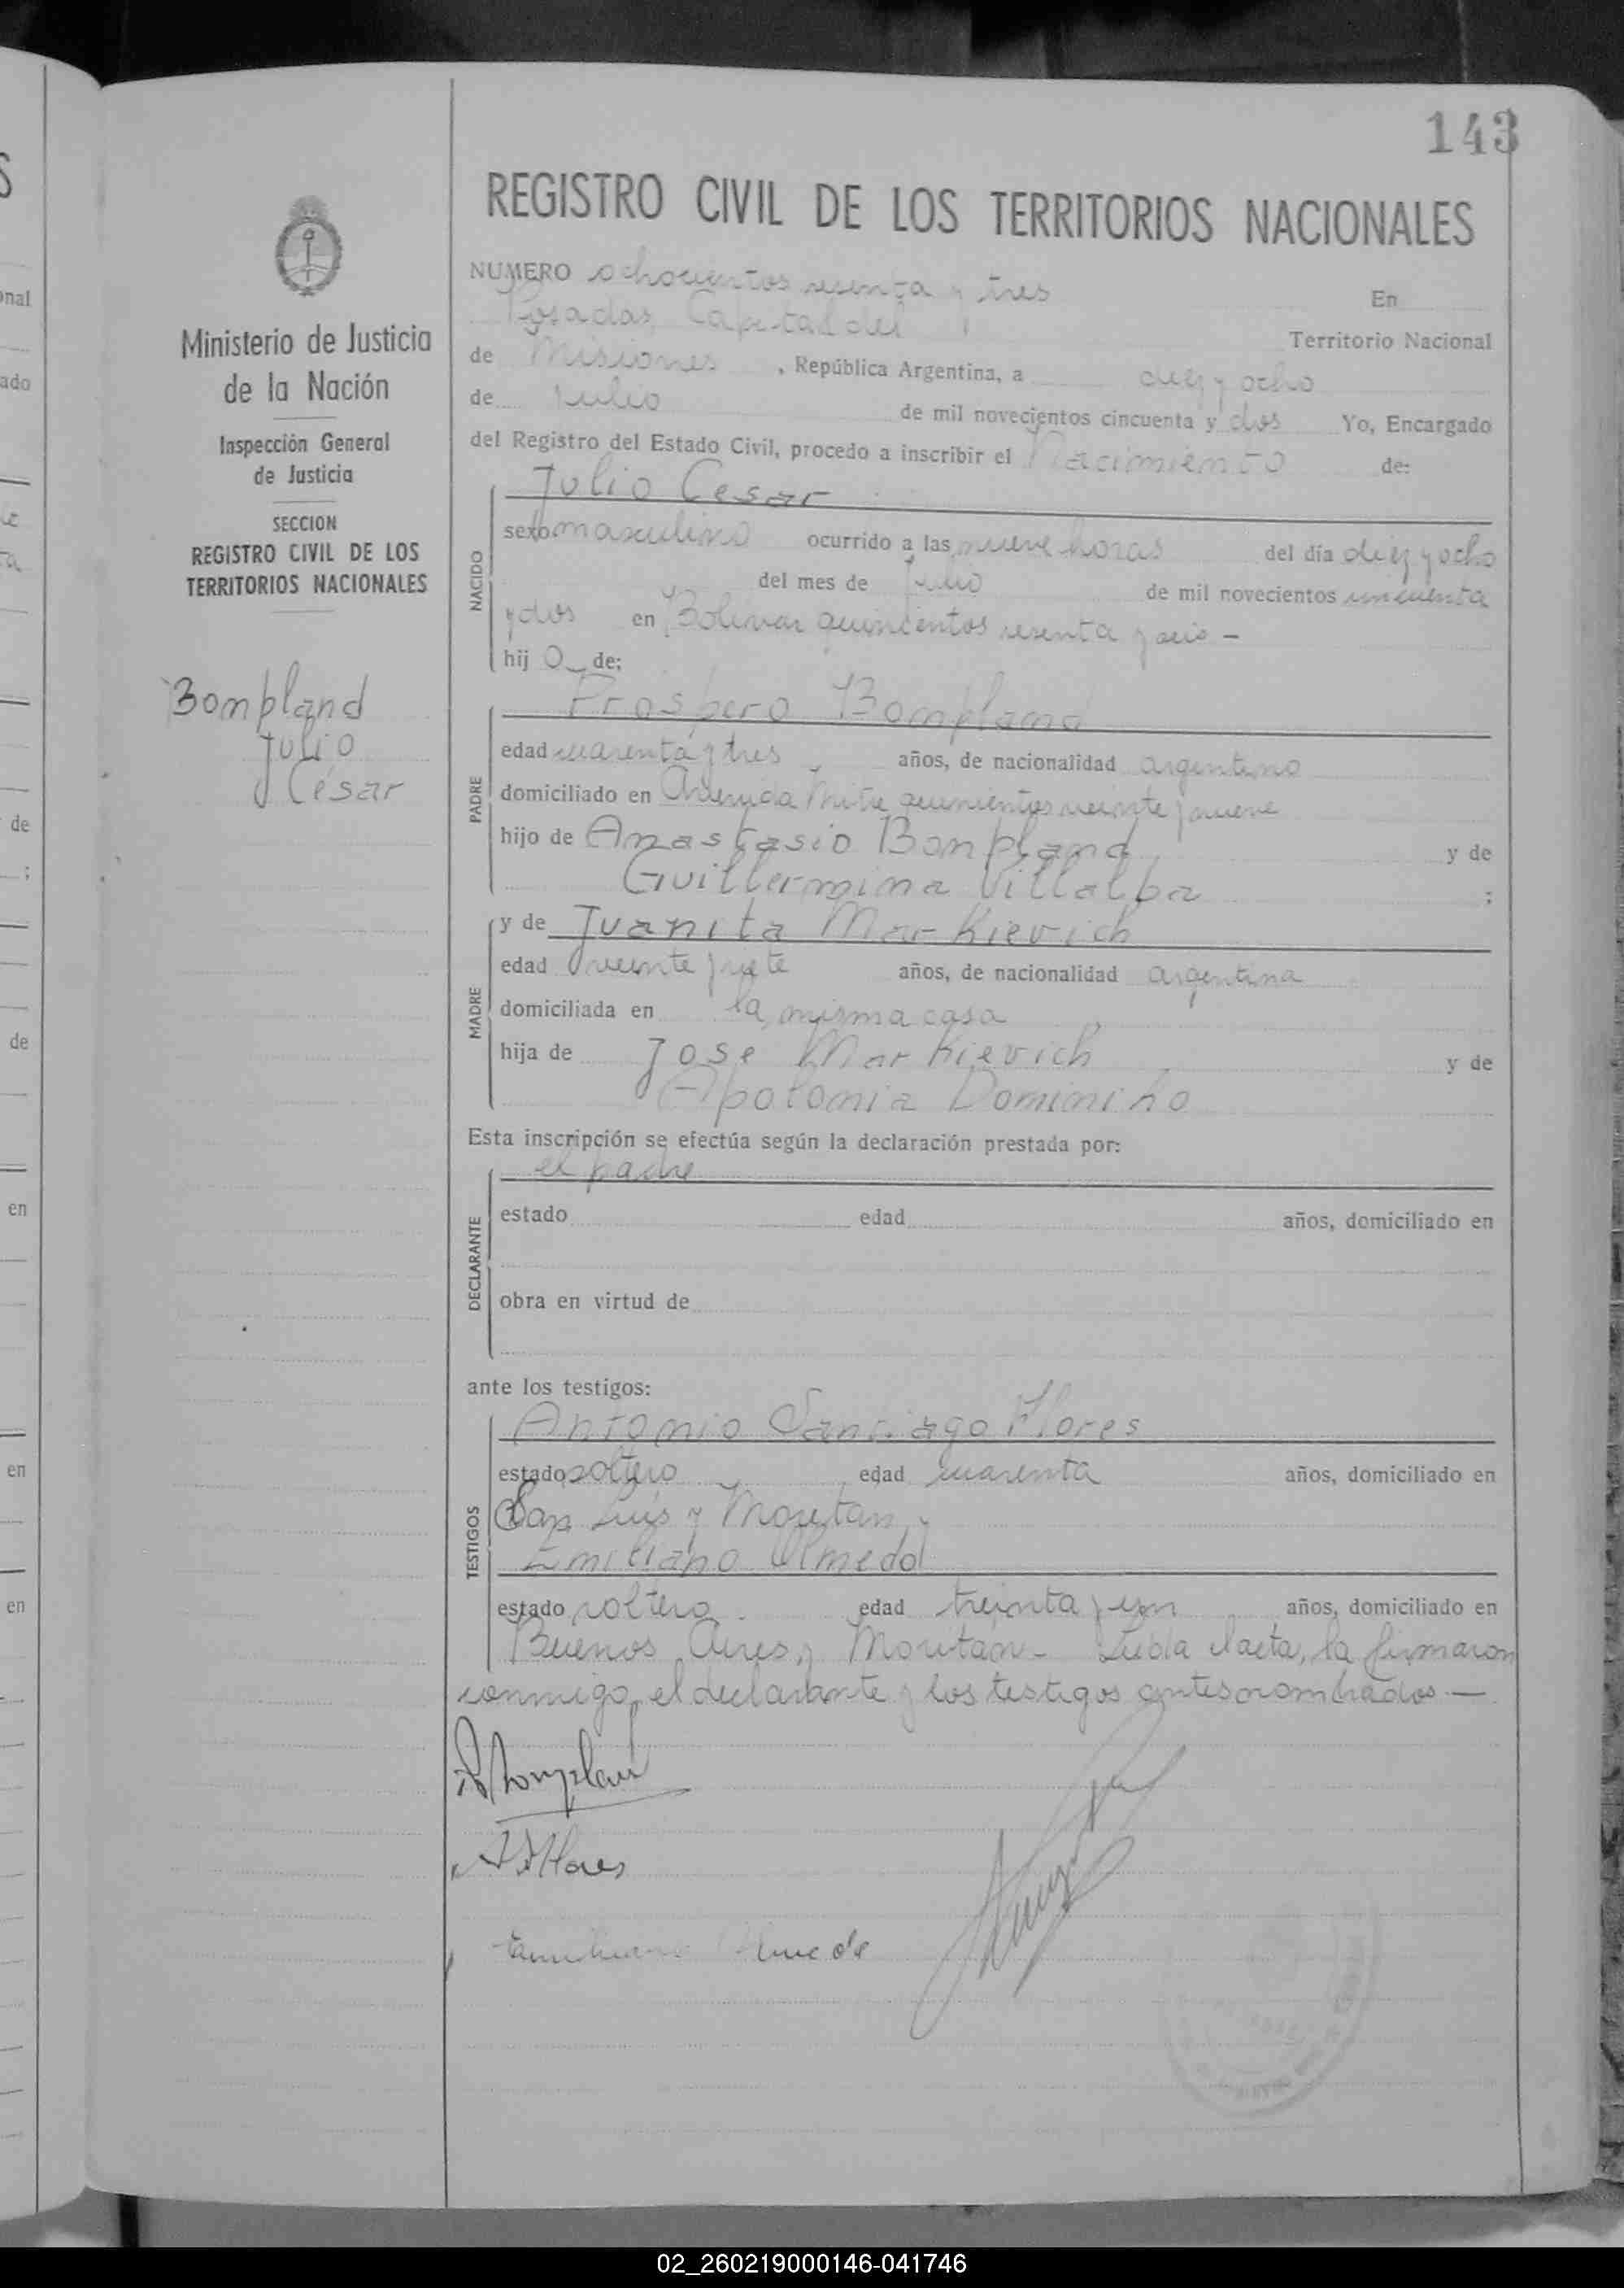 143
REGISTRO CIVIL DE LOS TERRITORIOS NACIONALES
Ministerio de Justicia
de la Nación
Inspección General
de Justicia
SECCION
REGISTRO CIVIL DE LOS
TERRITORIOS NACIONALES
Bompland
Julio
César
NUMERO ochocientos sesenta y tres En
Posadas, Capital del Territorio Nacional
de Misiones, República Argentina, a diez y ocho
de Julio de mil novecientos cincuenta y dos Yo, Encargado
del Registro del Estado Civil, procedo a inscribir el Nacimiento de:
NACIDO
Julio Cesar
sexo masculino ocurrido a las nueve horas del día diez y ocho
del mes de Julio de mil novecientos cincuenta
y dos en Bolivar quinientos sesenta y seis -
hij o de:
PADRE
Prospero Bompland
edad cuarenta y tres años, de nacionalidad argentino
domiciliado en Avenida Mitre quinientos veinte y nueve
hijo de Anastasio Bompland y de
Guillermina Villalba ;
MADRE
y de Juanita Markievich
edad veinte y siete años, de nacionalidad argentina
domiciliada en la misma casa
hija de Jose Markievich y de
Apolonia Dominiko
Esta inscripción se efectúa según la declaración prestada por:
DECLARANTE
el padre
estado edad años, domiciliado en
obra en virtud de
ante los testigos:
TESTIGOS
Antonio Santiago Flores
estado soltero edad cuarenta años, domiciliado en
San Luis y Moritan y
Emiliano Olmedo
estado soltero edad treinta y un años, domiciliado en
Buenos Aires y Moritan - Leida el acta, la firmaron
conmigo, el declarante y los testigos antes nombrados —
Bompland
Flores
Emiliano Olmedo
onal
ado
de
;
de
en
en
en
02_260219000146-041746